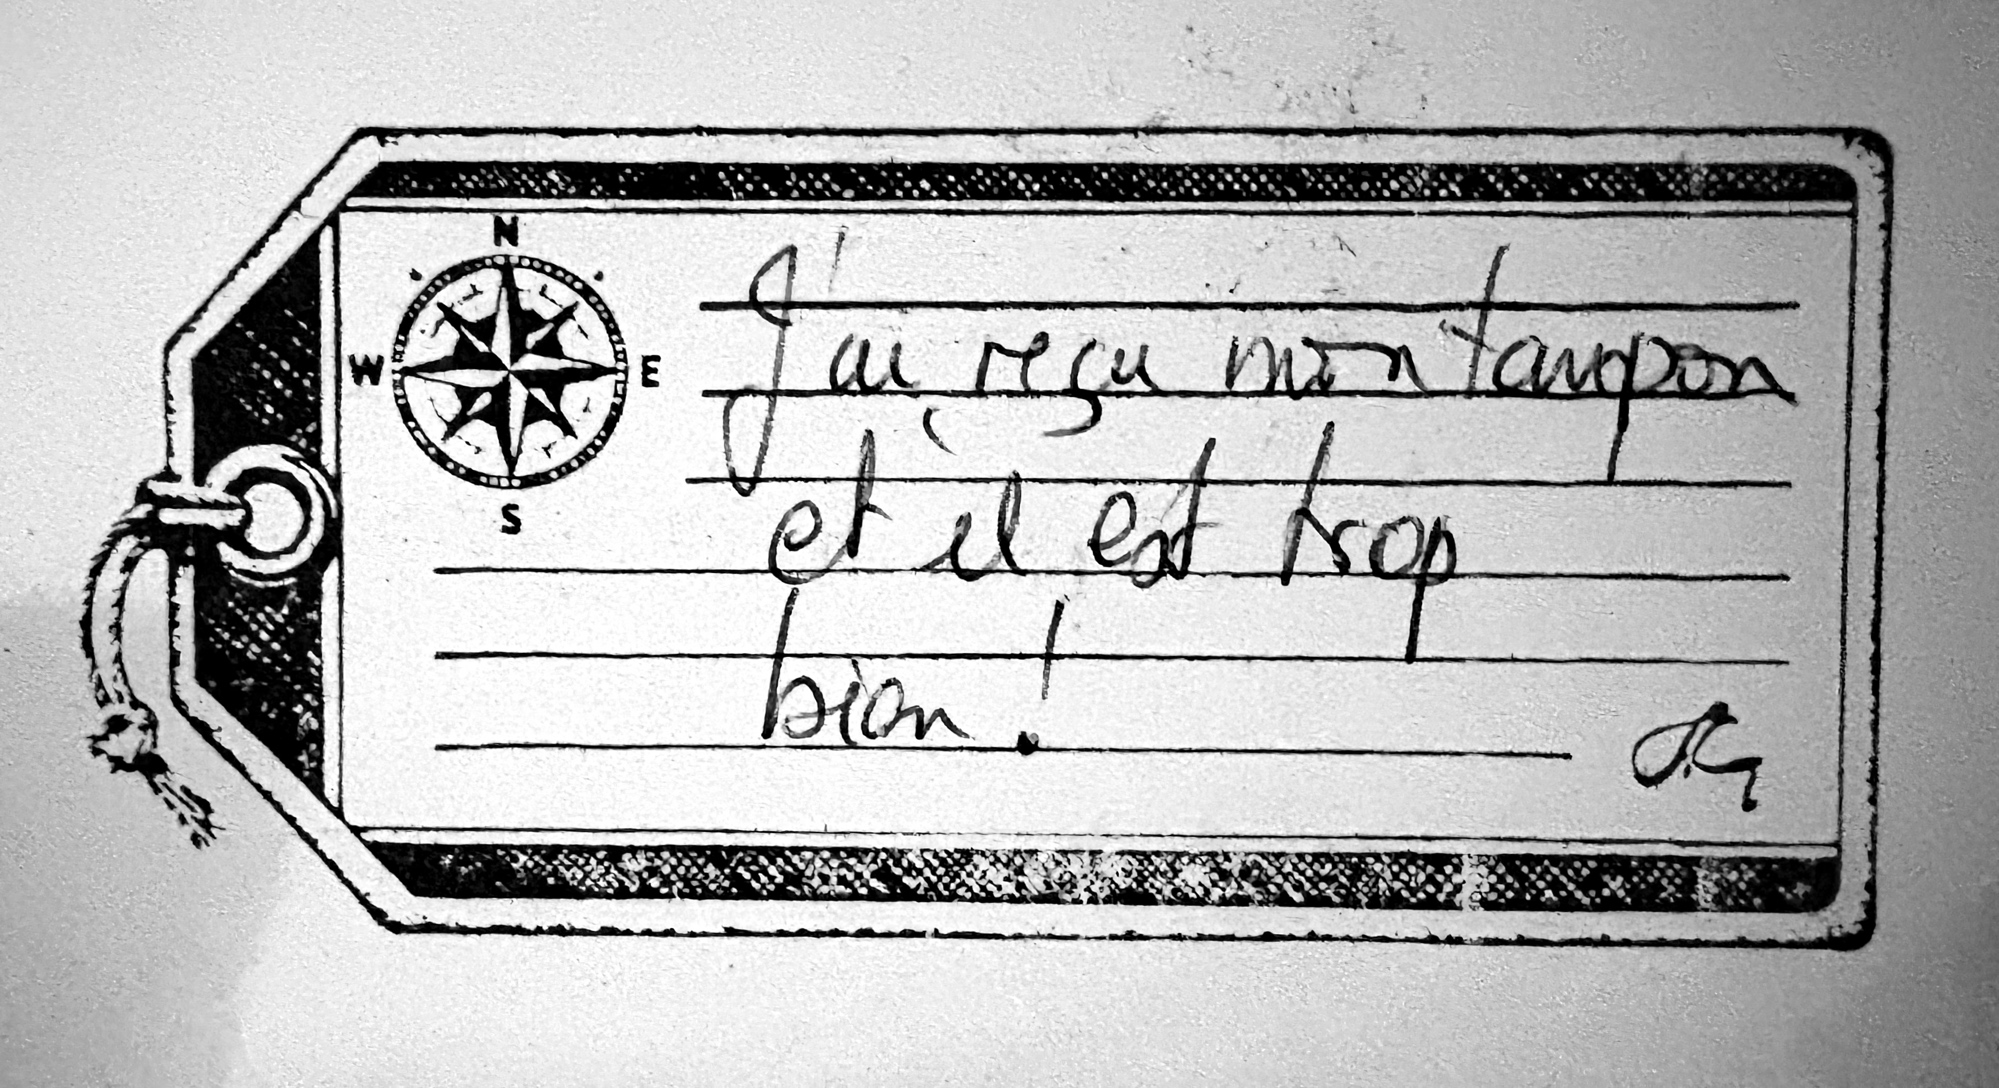 N
W E
S
J'ai reçu mon tampon
et il est trop
bien !